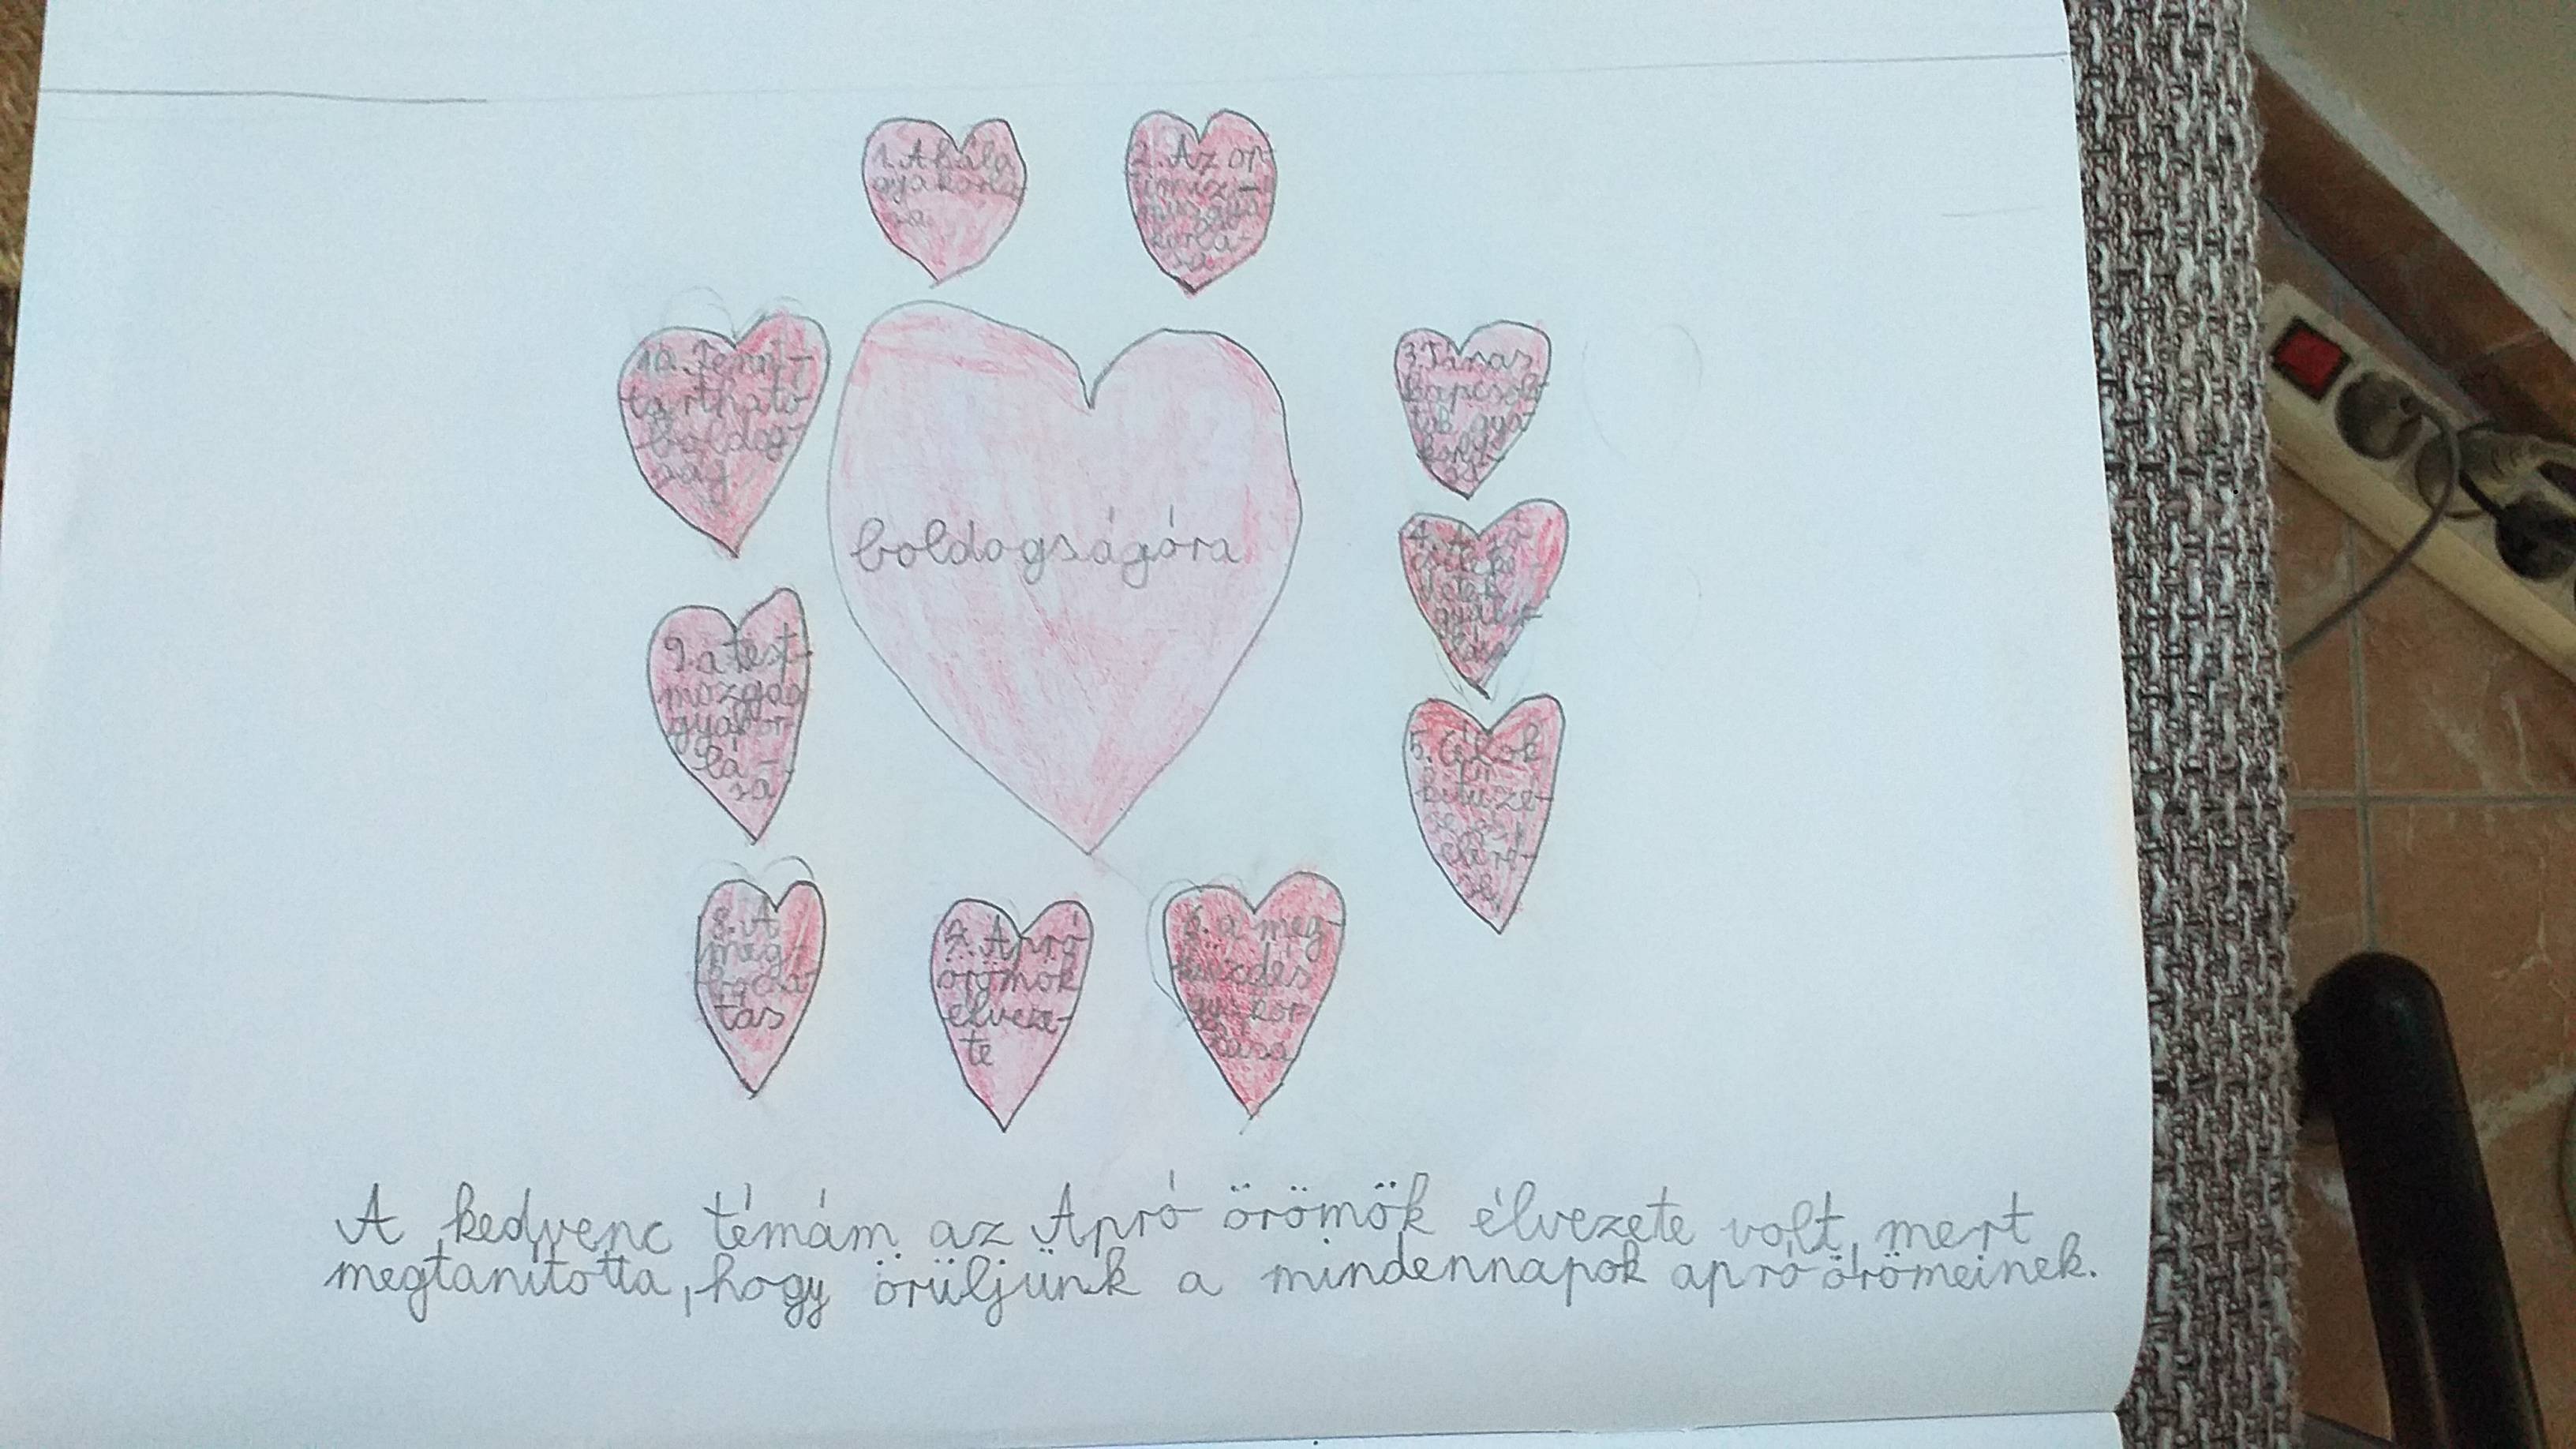 1. A hála
gyakorlá
sa
2. Az op-
timiz-
mus gya-
korlá-
sa
3. Társas
kapcsola
tok gya-
korlá-
sa
4.
gyakor-
lása
5. Célok
kitűzé-
se és
eléré-
se
6. a meg-
küzdés
gyakor-
lása
7. Apró
örömök
élveze-
te
8. A
meg-
bocsá-
tás
9. a test-
mozgás
gyakor-
lá-
sa
10. Fenn-
tartható
boldog-
ság.
boldogságóra
A kedvenc témám az Apró örömök élvezete volt, mert
megtanította, hogy örüljünk a mindennapok apró örömeinek.